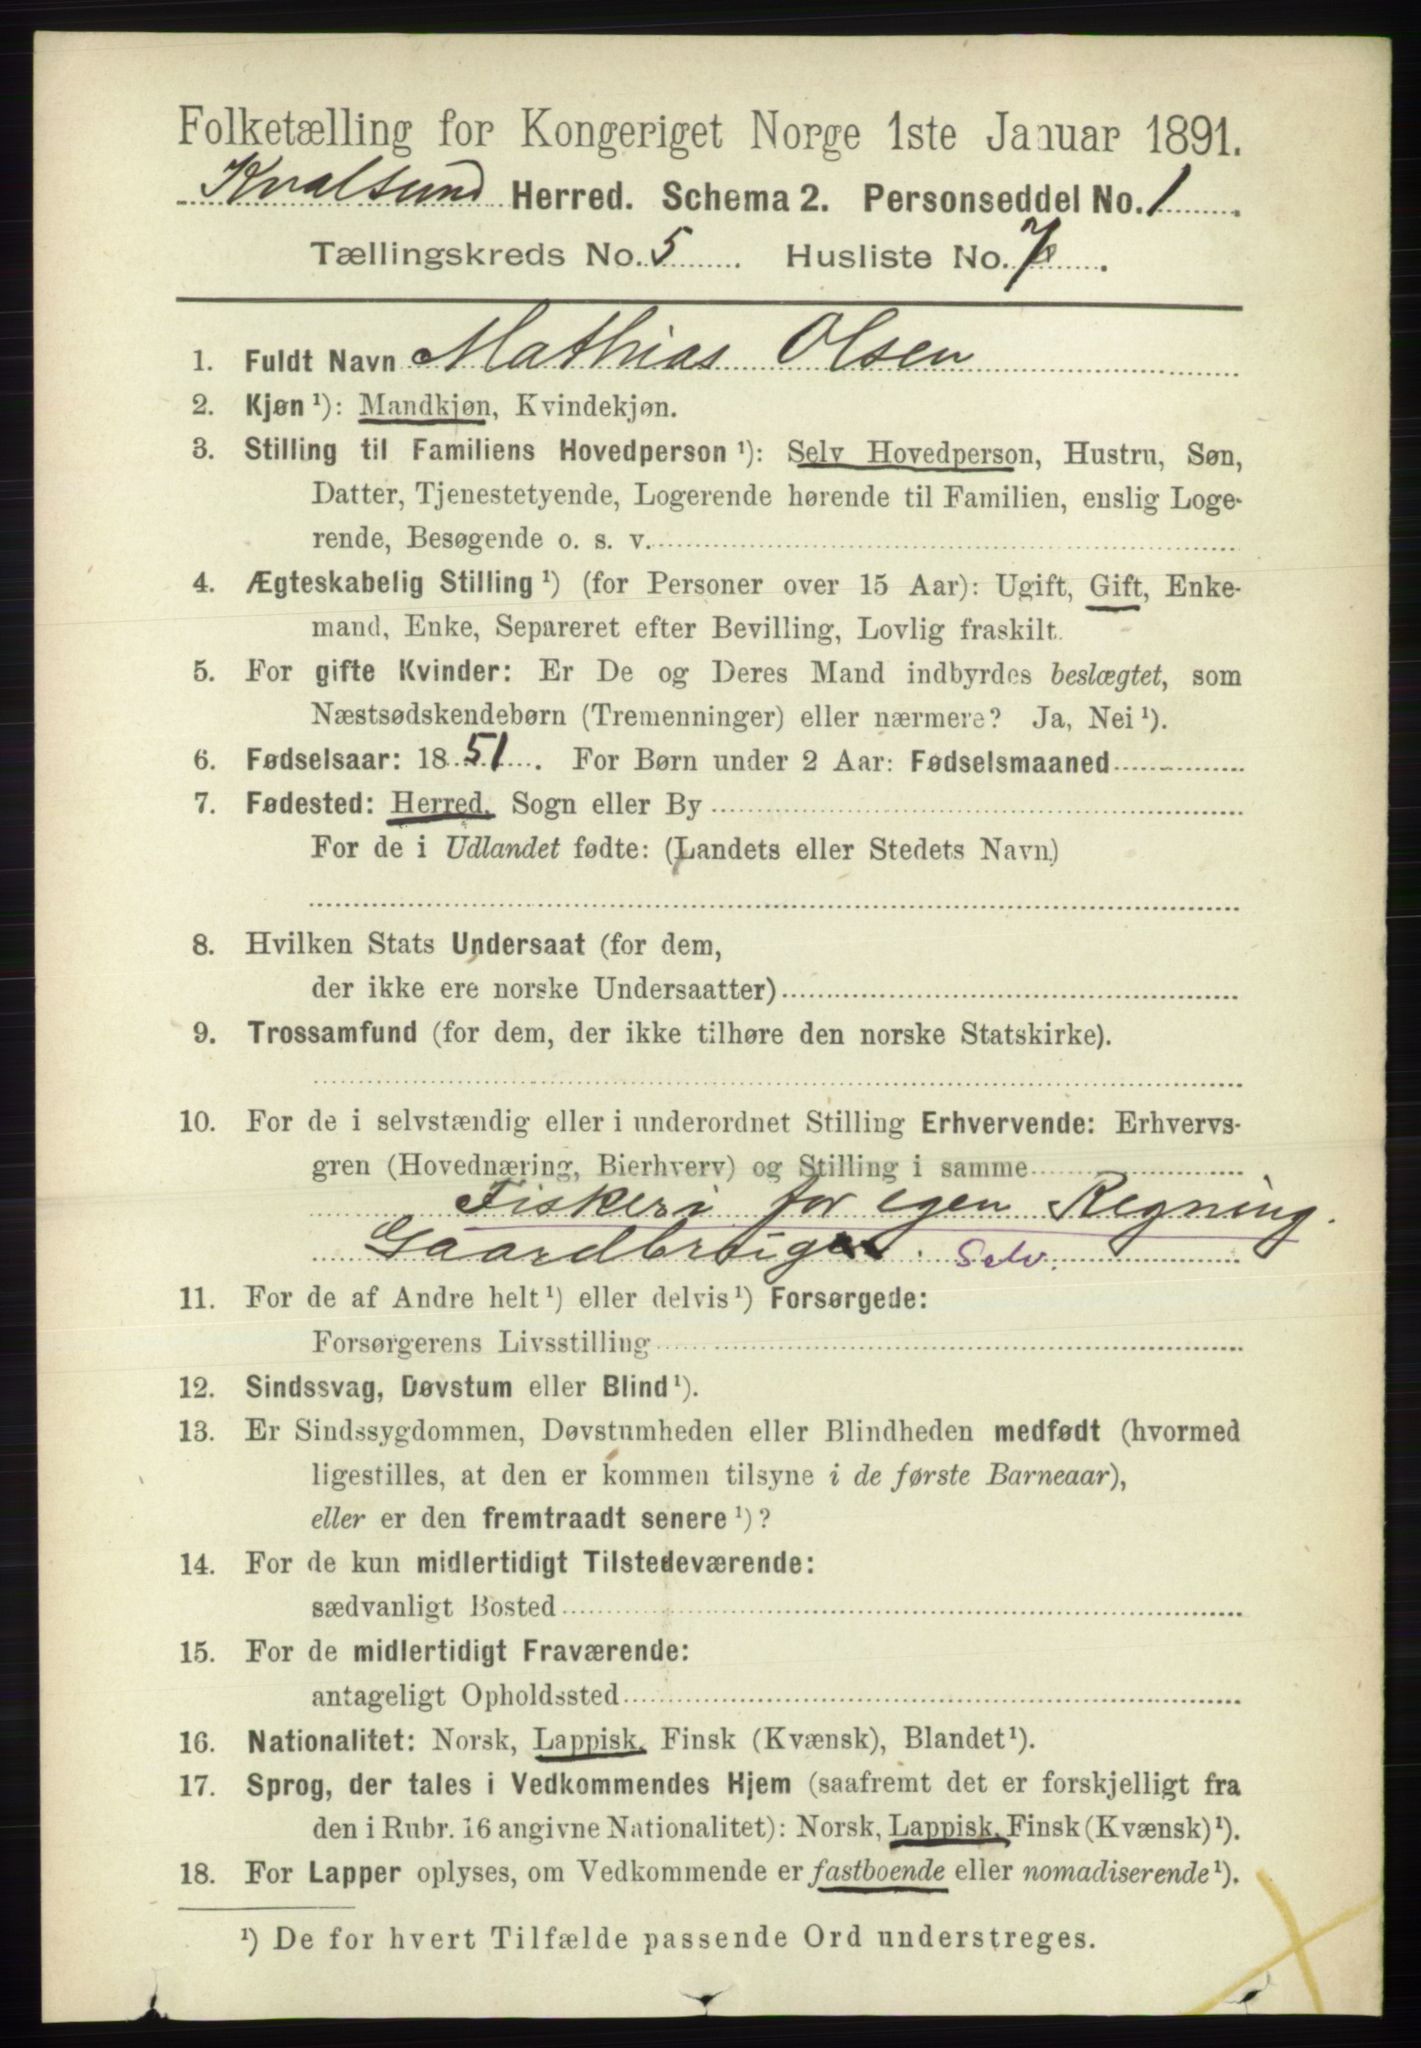 Folketælling for Kongeriget Norge 1ste Januar 1891.
Kvalsund Herred. Schema 2. Personseddel No. 1
Tællingskreds No. 5 Husliste No. 7
1. Fuldt Navn Mathias Olsen
2. Kjøn ¹): Mandkjøn, Kvindekjøn.
3. Stilling til Familiens Hovedperson ¹): Selv Hovedperson, Hustru, Søn,
Datter, Tjenestetyende, Logerende hørende til Familien, enslig Loge-
rende, Besøgende o. s. v.
4. Ægteskabelig Stilling ¹) (for Personer over 15 Aar): Ugift, Gift, Enke-
mand, Enke, Separeret efter Bevilling, Lovlig fraskilt.
5. For gifte Kvinder: Er De og Deres Mand indbyrdes beslægtet, som
Næstsødskendebørn (Tremenninger) eller nærmere? Ja, Nei ¹).
6. Fødselsaar: 1851. For Børn under 2 Aar: Fødselsmaaned
7. Fødested: Herred, Sogn eller By
For de i Udlandet fødte: (Landets eller Stedets Navn)
8. Hvilken Stats Undersaat (for dem,
der ikke ere norske Undersaatter)
9. Trossamfund (for dem, der ikke tilhøre den norske Statskirke).
10. For de i selvstændig eller i underordnet Stilling Erhvervende: Erhvervs-
gren (Hovednæring, Bierhverv) og Stilling i samme
Fiskeri for egen Regning.
Gaardbruger. Selv.
11. For de af Andre helt ¹) eller delvis ¹) Forsørgede:
Forsørgerens Livsstilling
12. Sindssvag, Døvstum eller Blind ¹).
13. Er Sindssygdommen, Døvstumheden eller Blindheden medfødt (hvormed
ligestilles, at den er kommen tilsyne i de første Barneaar),
eller er den fremtraadt senere ¹)?
14. For de kun midlertidigt Tilstedeværende:
sædvanligt Bosted
15. For de midlertidigt Fraværende:
antageligt Opholdssted
16. Nationalitet: Norsk, Lappisk, Finsk (Kvænsk), Blandet ¹).
17. Sprog, der tales i Vedkommendes Hjem (saafremt det er forskjelligt fra
den i Rubr. 16 angivne Nationalitet): Norsk, Lappisk, Finsk (Kvænsk) ¹).
18. For Lapper oplyses, om Vedkommende er fastboende eller nomadiserende ¹).
¹) De for hvert Tilfælde passende Ord understreges.